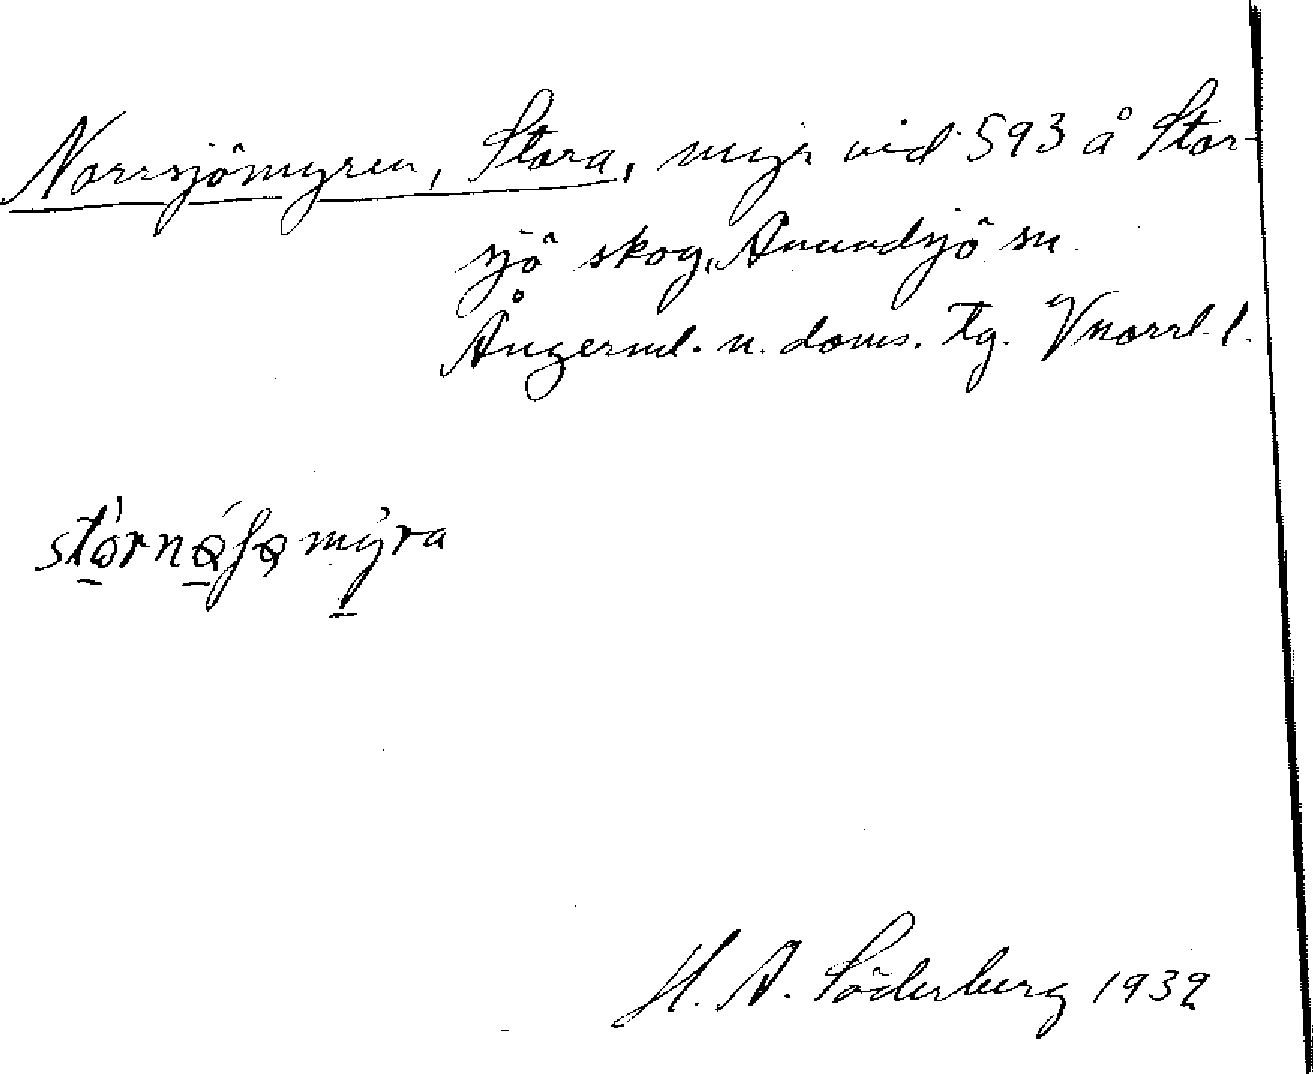 Norrsjömyren, Stora, myr vid 593 å Stor-
sjö skog, Anundsjö sn
Ångerml. n. doms. tg. Vnorrl. l.
H. A. Söderberg 1932